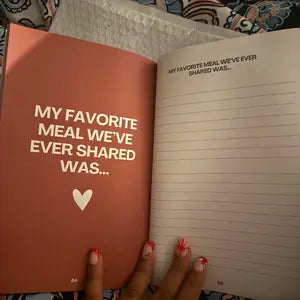 MY FAVORITE
MEAL WE'VE
EVER SHARED
WAS...
64
MY FAVORITE MEAL WE'VE EVER
SHARED WAS...